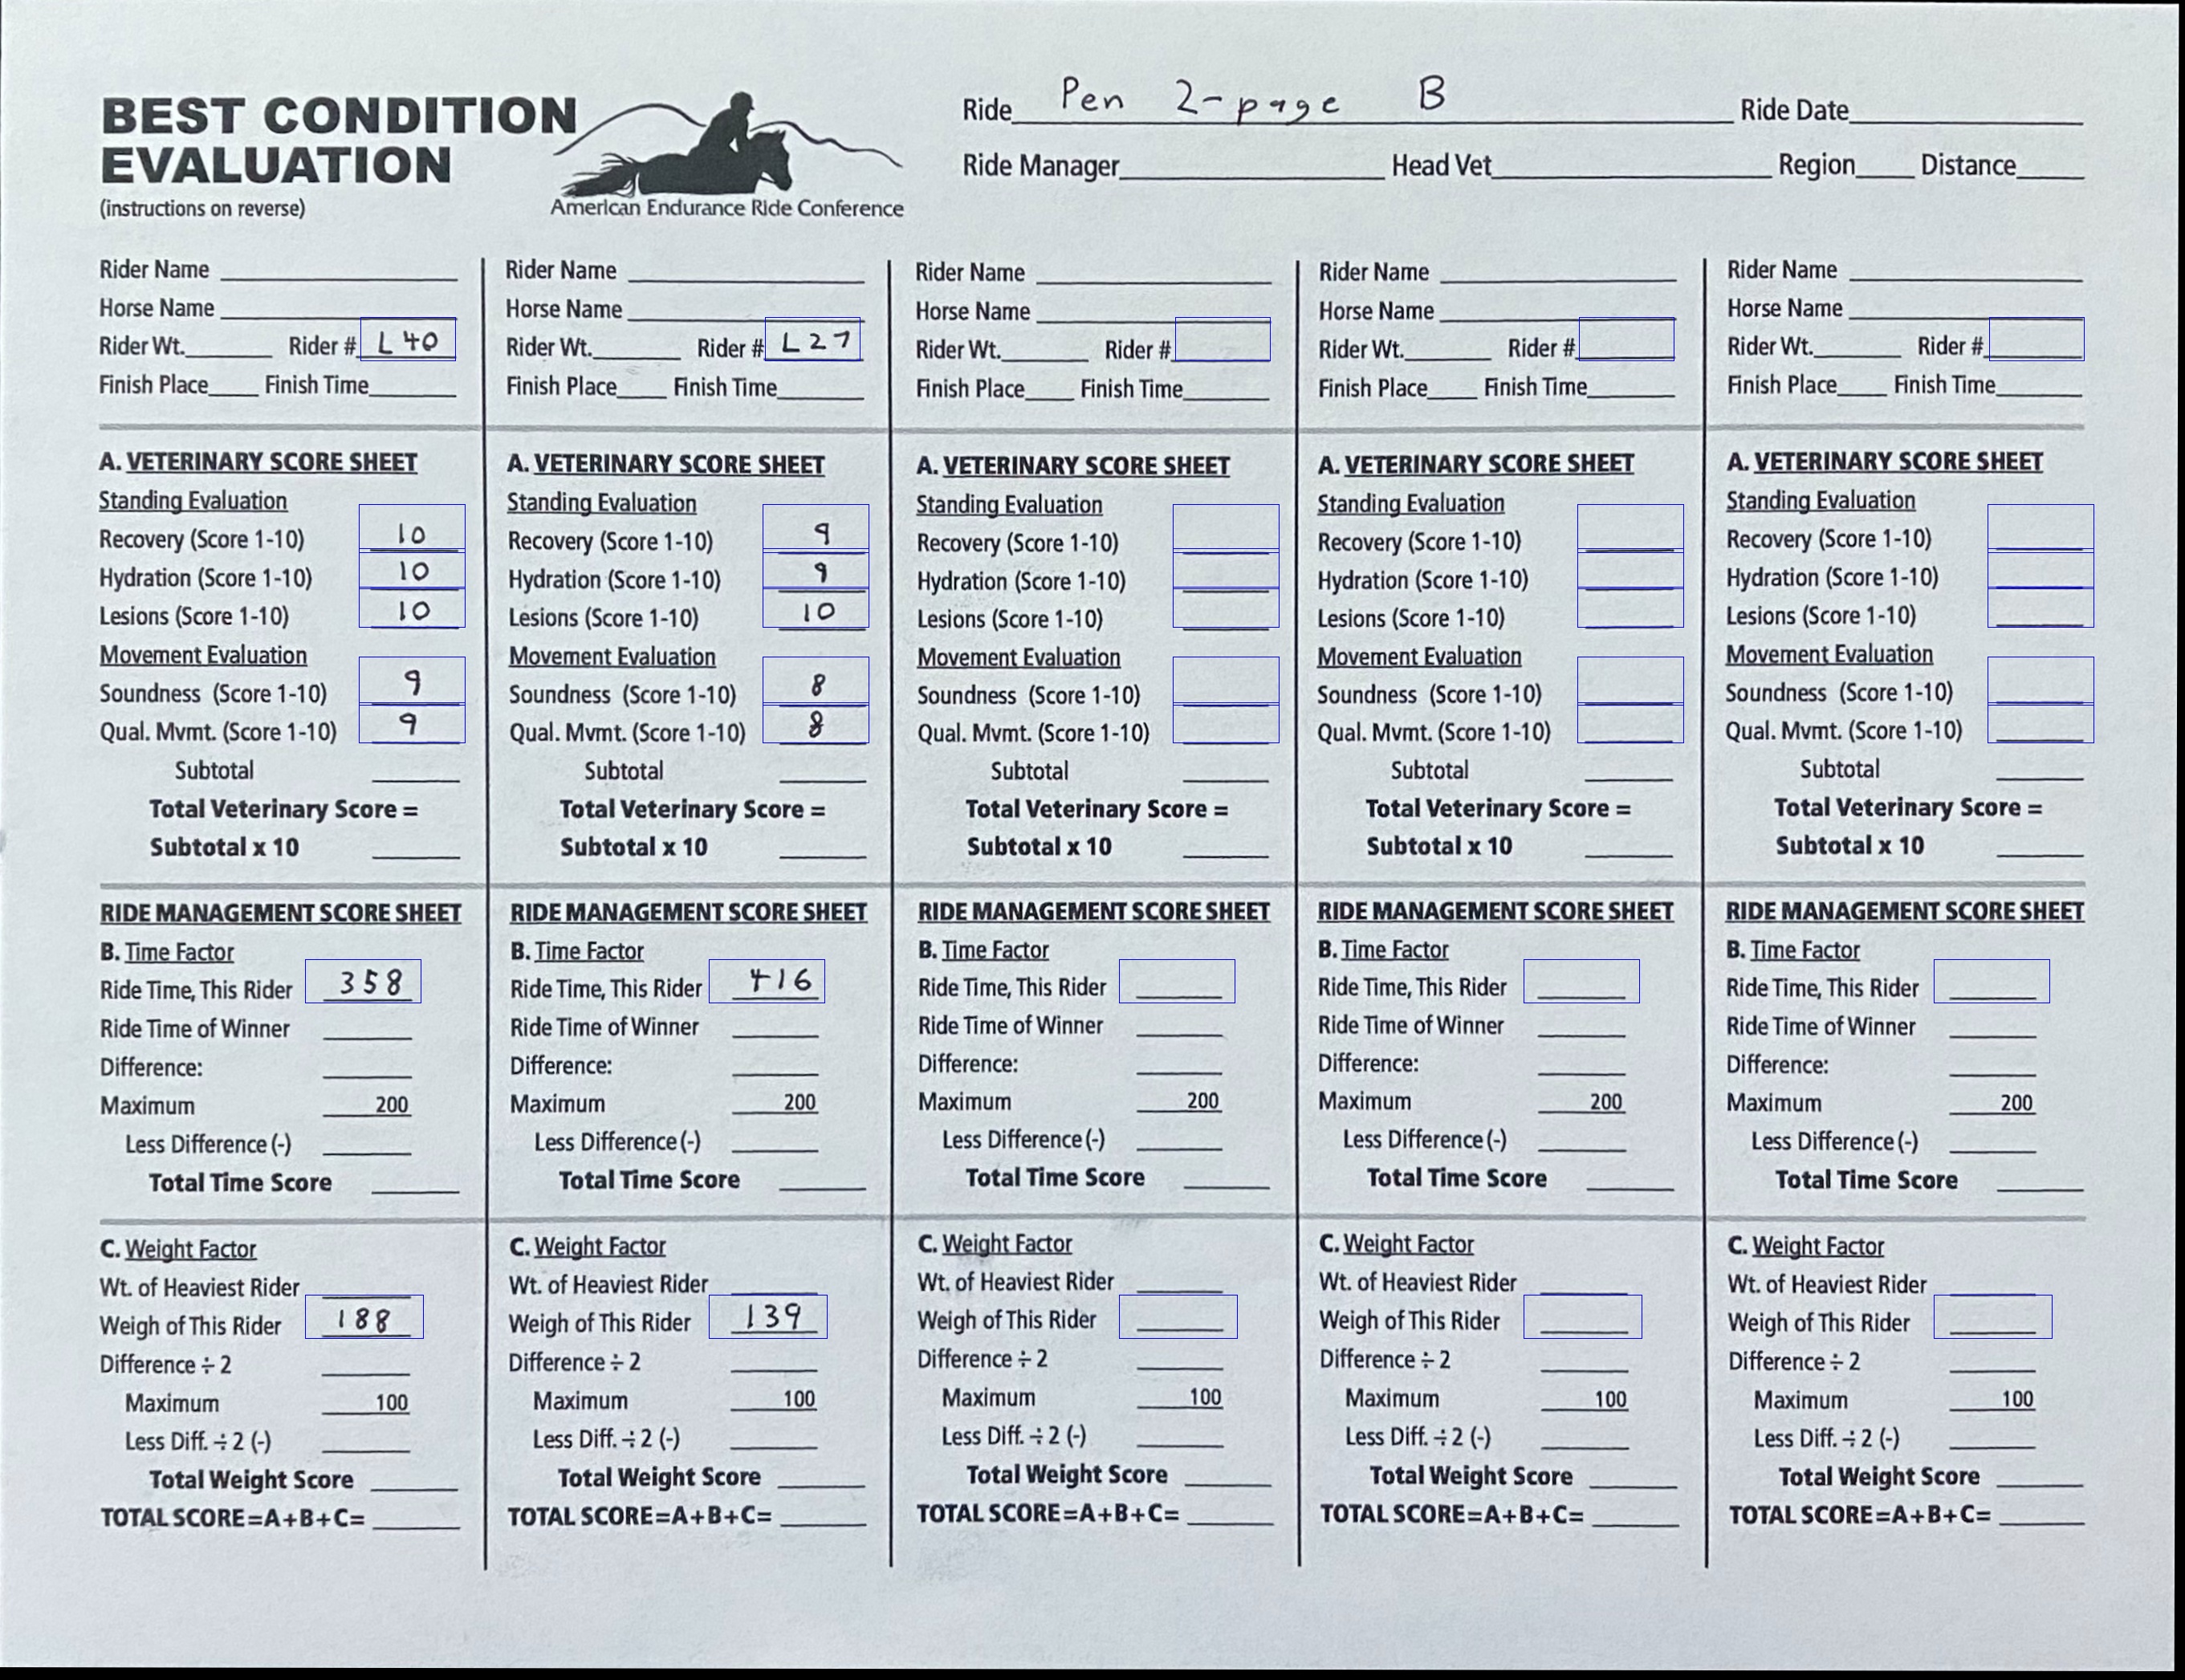 BEST CONDITION
EVALUATION
(instructions on reverse)
American Endurance Ride Conference
Ride Pen 2-page B Ride Date
Ride Manager Head Vet Region Distance
Rider Name
Horse Name
Rider Wt. Rider # L40
Finish Place Finish Time
A. VETERINARY SCORE SHEET
Standing Evaluation
Recovery (Score 1-10) 10
Hydration (Score 1-10) 10
Lesions (Score 1-10) 10
Movement Evaluation
Soundness (Score 1-10) 9
Qual. Mvmt. (Score 1-10) 9
Subtotal
Total Veterinary Score =
Subtotal x 10
RIDE MANAGEMENT SCORE SHEET
B. Time Factor
Ride Time, This Rider 358
Ride Time of Winner
Difference:
Maximum 200
Less Difference (-)
Total Time Score
C. Weight Factor
Wt. of Heaviest Rider
Weigh of This Rider 188
Difference ÷ 2
Maximum 100
Less Diff. ÷ 2 (-)
Total Weight Score
TOTAL SCORE=A+B+C=
Rider Name
Horse Name
Rider Wt. Rider # L27
Finish Place Finish Time
A. VETERINARY SCORE SHEET
Standing Evaluation
Recovery (Score 1-10) 9
Hydration (Score 1-10) 9
Lesions (Score 1-10) 10
Movement Evaluation
Soundness (Score 1-10) 8
Qual. Mvmt. (Score 1-10) 8
Subtotal
Total Veterinary Score =
Subtotal x 10
RIDE MANAGEMENT SCORE SHEET
B. Time Factor
Ride Time, This Rider 416
Ride Time of Winner
Difference:
Maximum 200
Less Difference (-)
Total Time Score
C. Weight Factor
Wt. of Heaviest Rider
Weigh of This Rider 139
Difference ÷ 2
Maximum 100
Less Diff. ÷ 2 (-)
Total Weight Score
TOTAL SCORE=A+B+C=
Rider Name
Horse Name
Rider Wt. Rider #
Finish Place Finish Time
A. VETERINARY SCORE SHEET
Standing Evaluation
Recovery (Score 1-10)
Hydration (Score 1-10)
Lesions (Score 1-10)
Movement Evaluation
Soundness (Score 1-10)
Qual. Mvmt. (Score 1-10)
Subtotal
Total Veterinary Score =
Subtotal x 10
RIDE MANAGEMENT SCORE SHEET
B. Time Factor
Ride Time, This Rider
Ride Time of Winner
Difference:
Maximum 200
Less Difference (-)
Total Time Score
C. Weight Factor
Wt. of Heaviest Rider
Weigh of This Rider
Difference ÷ 2
Maximum 100
Less Diff. ÷ 2 (-)
Total Weight Score
TOTAL SCORE=A+B+C=
Rider Name
Horse Name
Rider Wt. Rider #
Finish Place Finish Time
A. VETERINARY SCORE SHEET
Standing Evaluation
Recovery (Score 1-10)
Hydration (Score 1-10)
Lesions (Score 1-10)
Movement Evaluation
Soundness (Score 1-10)
Qual. Mvmt. (Score 1-10)
Subtotal
Total Veterinary Score =
Subtotal x 10
RIDE MANAGEMENT SCORE SHEET
B. Time Factor
Ride Time, This Rider
Ride Time of Winner
Difference:
Maximum 200
Less Difference (-)
Total Time Score
C. Weight Factor
Wt. of Heaviest Rider
Weigh of This Rider
Difference ÷ 2
Maximum 100
Less Diff. ÷ 2 (-)
Total Weight Score
TOTAL SCORE=A+B+C=
Rider Name
Horse Name
Rider Wt. Rider #
Finish Place Finish Time
A. VETERINARY SCORE SHEET
Standing Evaluation
Recovery (Score 1-10)
Hydration (Score 1-10)
Lesions (Score 1-10)
Movement Evaluation
Soundness (Score 1-10)
Qual. Mvmt. (Score 1-10)
Subtotal
Total Veterinary Score =
Subtotal x 10
RIDE MANAGEMENT SCORE SHEET
B. Time Factor
Ride Time, This Rider
Ride Time of Winner
Difference:
Maximum 200
Less Difference (-)
Total Time Score
C. Weight Factor
Wt. of Heaviest Rider
Weigh of This Rider
Difference ÷ 2
Maximum 100
Less Diff. ÷ 2 (-)
Total Weight Score
TOTAL SCORE=A+B+C=